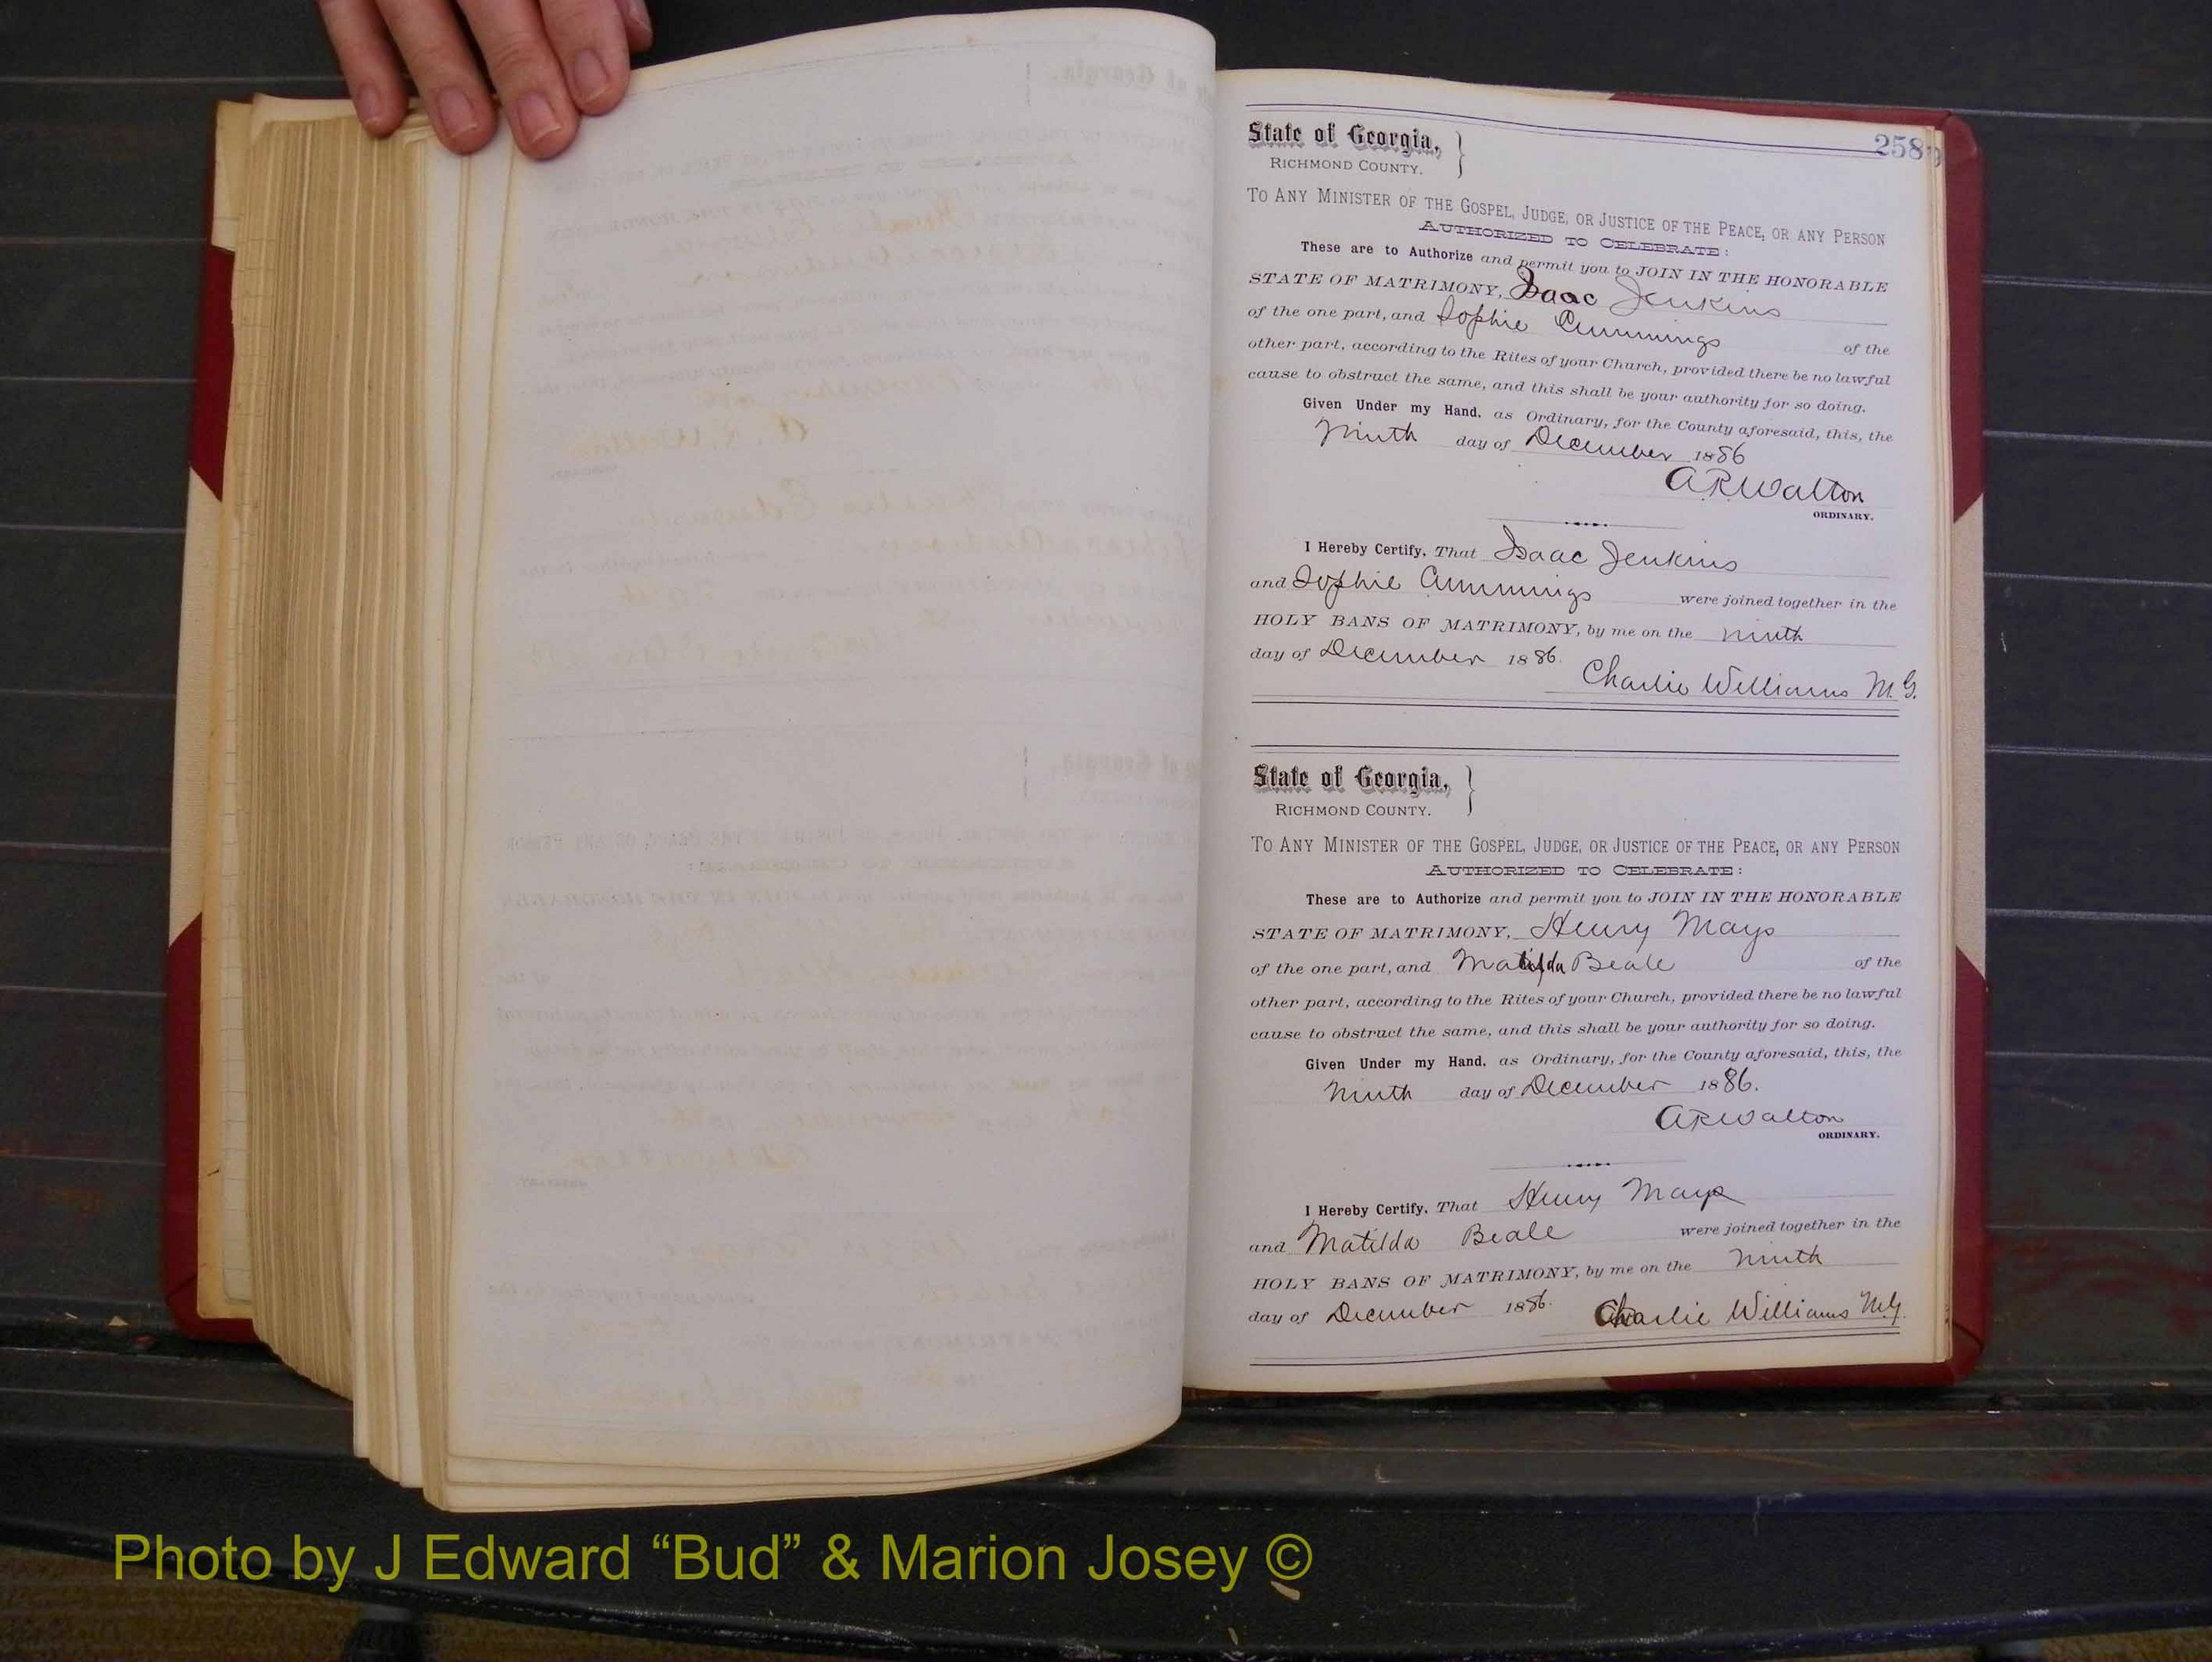 258
State of Georgia,
RICHMOND COUNTY.
TO ANY MINISTER OF THE GOSPEL, JUDGE, OR JUSTICE OF THE PEACE, OR ANY PERSON
AUTHORIZED TO CELEBRATE:
These are to Authorize and permit you to JOIN IN THE HONORABLE
STATE OF MATRIMONY, Isaac Jenkins
of the one part, and Sophie Cummings of the
other part, according to the Rites of your Church, provided there be no lawful
cause to obstruct the same, and this shall be your authority for so doing.
Given Under my Hand, as Ordinary, for the County aforesaid, this, the
Ninth day of December 1886
A.R. Walton
ORDINARY.
I Hereby Certify, That Isaac Jenkins
and Sophie Cummings were joined together in the
HOLY BANS OF MATRIMONY, by me on the ninth
day of December 1886.
Charlie Williams M.G.
State of Georgia,
RICHMOND COUNTY.
TO ANY MINISTER OF THE GOSPEL, JUDGE, OR JUSTICE OF THE PEACE, OR ANY PERSON
AUTHORIZED TO CELEBRATE:
These are to Authorize and permit you to JOIN IN THE HONORABLE
STATE OF MATRIMONY, Henry Mays
of the one part, and Matilda Beale of the
other part, according to the Rites of your Church, provided there be no lawful
cause to obstruct the same, and this shall be your authority for so doing.
Given Under my Hand, as Ordinary, for the County aforesaid, this, the
Ninth day of December 1886.
A R Walton
ORDINARY.
I Hereby Certify, That Henry Mays
and Matilda Beale were joined together in the
HOLY BANS OF MATRIMONY, by me on the ninth
day of December 1886. Charlie Williams M.G.
Photo by J Edward “Bud” & Marion Josey ©